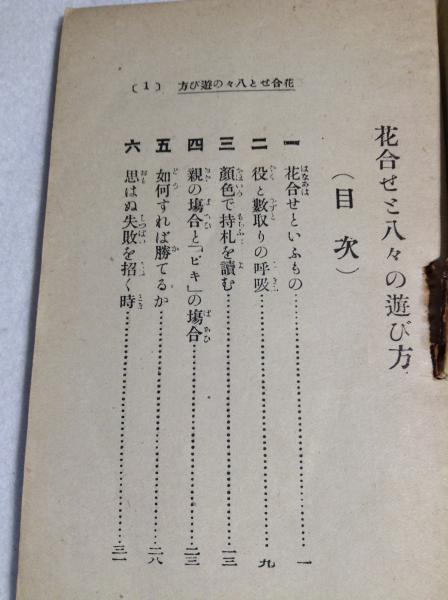 花合せと八々の遊び方
(目次)
一 花合せといふもの……一
二 役と數取りの呼吸……九
三 顏色で持札を讀む……一三
四 親の塲合と「ビキ」の塲合……二三
五 如何すれば勝てるか……二八
六 思はぬ失敗を招く時……三一
花合せと八々の遊び方 (1)